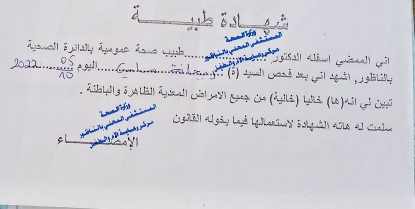 شهادة طبية
اني الممضي اسفله الدكتور ........ طبيب صحة عمومية بالدائرة الصحية
بالناظور, اشهد اني بعد فحص السيد (ة) ........ اليوم 05 10 2022
تبين لي انه(ها) خاليا (خالية) من جميع الامراض المعدية الظاهرة والباطنة .
سلمت له هاته الشهادة لاستعمالها فيما يخوله القانون
الإمضاء
وزارة الصحة